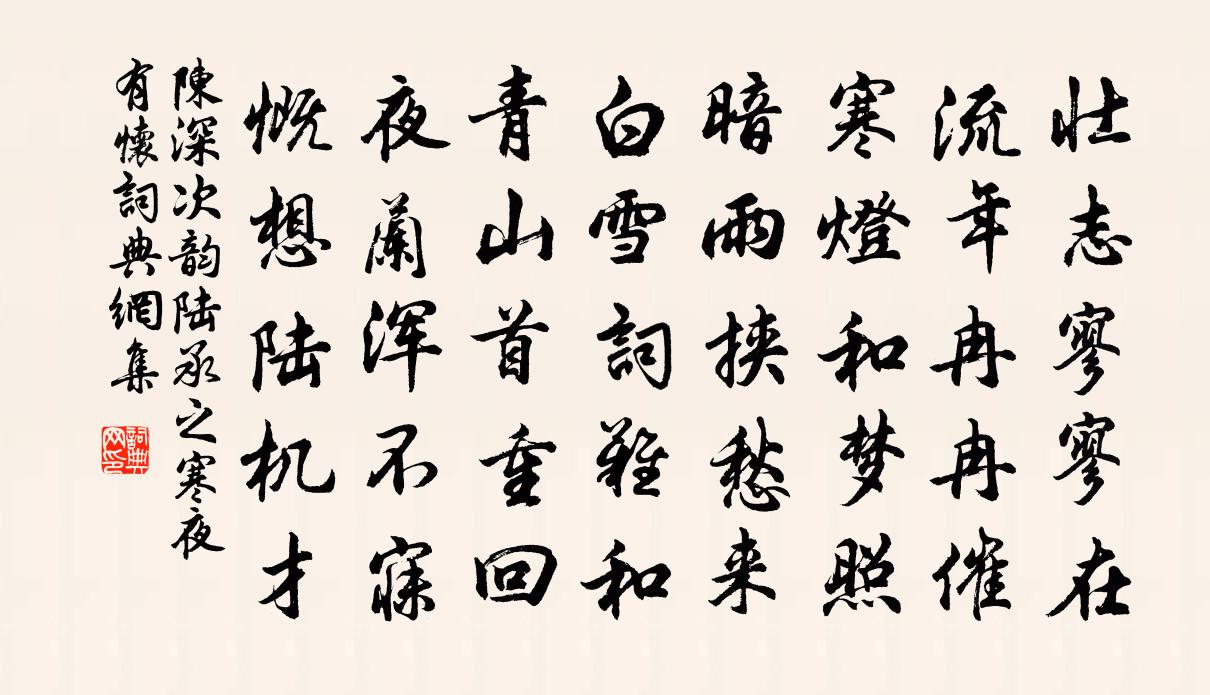 壮志寥寥在
流年冉冉催
寒燈和梦照
暗雨挟愁来
白雪詞難和
青山首重回
夜闌浑不寐
慨想陆机才
陳深次韵陆承之寒夜
有懷詞典網集
詞典
网印